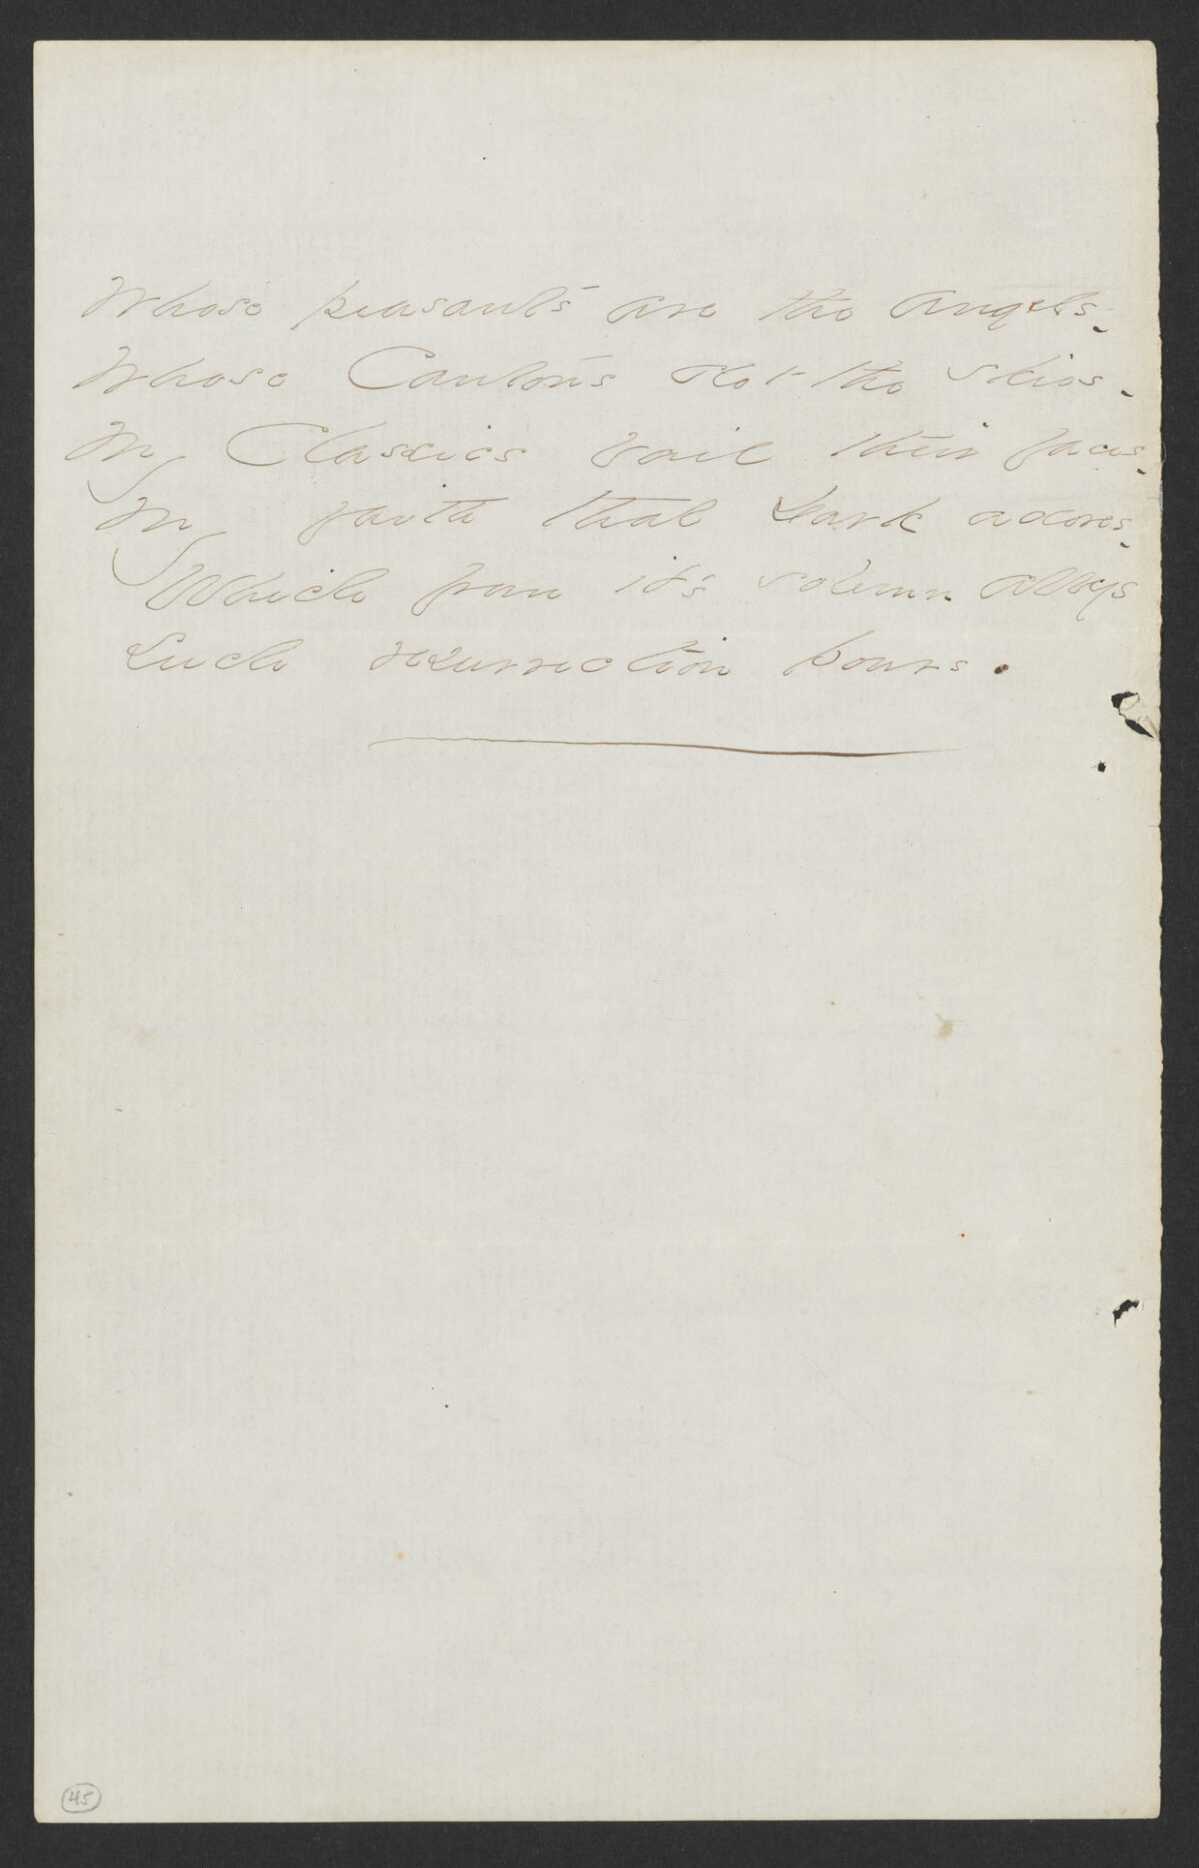 Whose peasants are the Angels -
Whose Cantons dot the skies -
My Classics vail their faces -
My faith that Dark adores -
Which from it's solemn abbeys
Such resurrection pours.
45